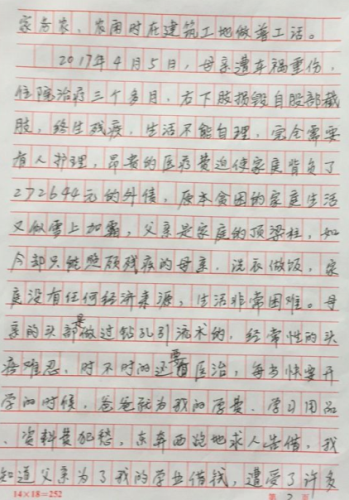 家务农，农闲时在建筑工地做着工活。
2017年4月5日，母亲遭车祸重伤，
住院治疗三个多月，右下肢损毁自股部截
肢，终生残疾，生活不能自理，完全需要
有人护理，昂贵的医疗费迫使家庭背负了
272644元的外债，原本贫困的家庭生活
又似雪上加霜，父亲是家庭的顶梁柱，如
今却只能照顾残疾的母亲，洗衣做饭，家
庭没有任何经济来源，生活非常困难。母
亲的头部是做过钻孔引流术的，经常性的头
疼难忍，时不时的还要有医治，每当快要开
学的时候，爸爸就为我的学费、学习用品
、资料费犯愁，东奔西跑地求人告借，我
知道父亲为了我的学业借钱，遭受了许多
14×18=252 第 2 页